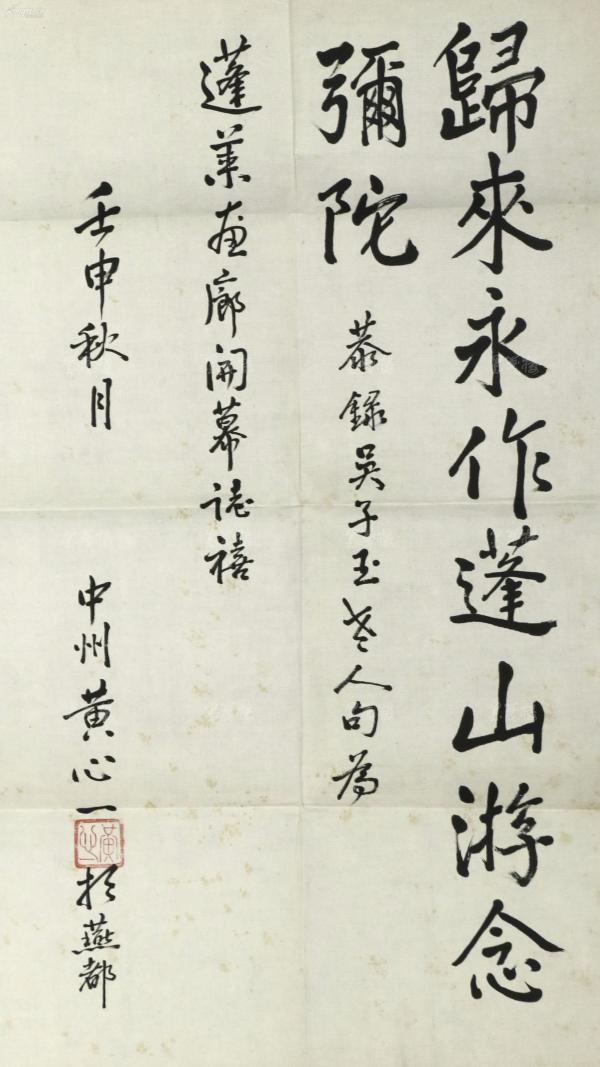 歸來永作蓬山游念
彌陀
恭錄吳子玉老人句為
蓬萊畫廊開幕誌禧
壬申秋月
中州黄心一
於燕都